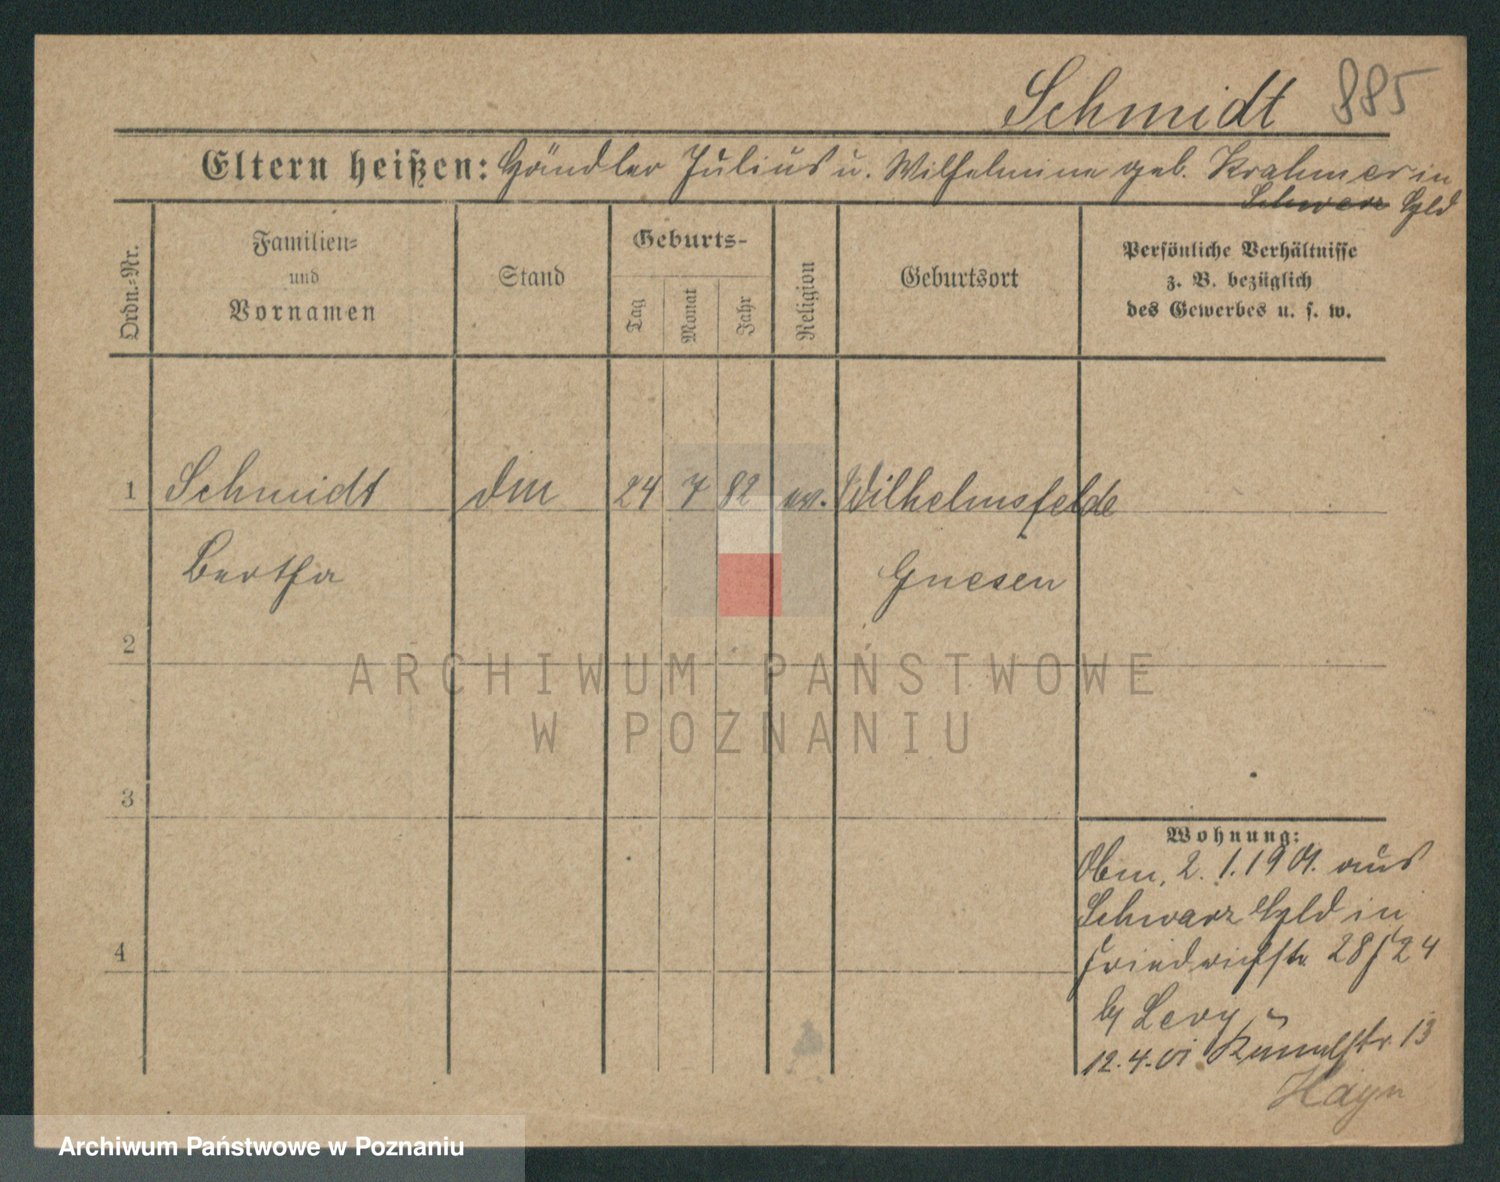 Schmidt 885
Eltern heißen: Händler Julius u. Wilhelmine geb. Krahmer in
Schwarz Gld
Ordn.-Nr.
Familien-
und
Vornamen
Stand
Geburts-
Tag
Monat
Jahr
Religion
Geburtsort
Persönliche Verhältnisse
z. B. bezüglich
des Gewerbes u. s. w.
1 Schmidt 24 7 82 ev. Wilhelmsfelde
Bertha Gnesen
2
3
4
Wohnung:
2. 1. 1901. aus
Schwarz Gld in
Friedrichstr 28/24
b/ Levy
12.4.01 13
Hayn
ARCHIWUM PAŃSTWOWE
W POZNANIU
Archiwum Państwowe w Poznaniu